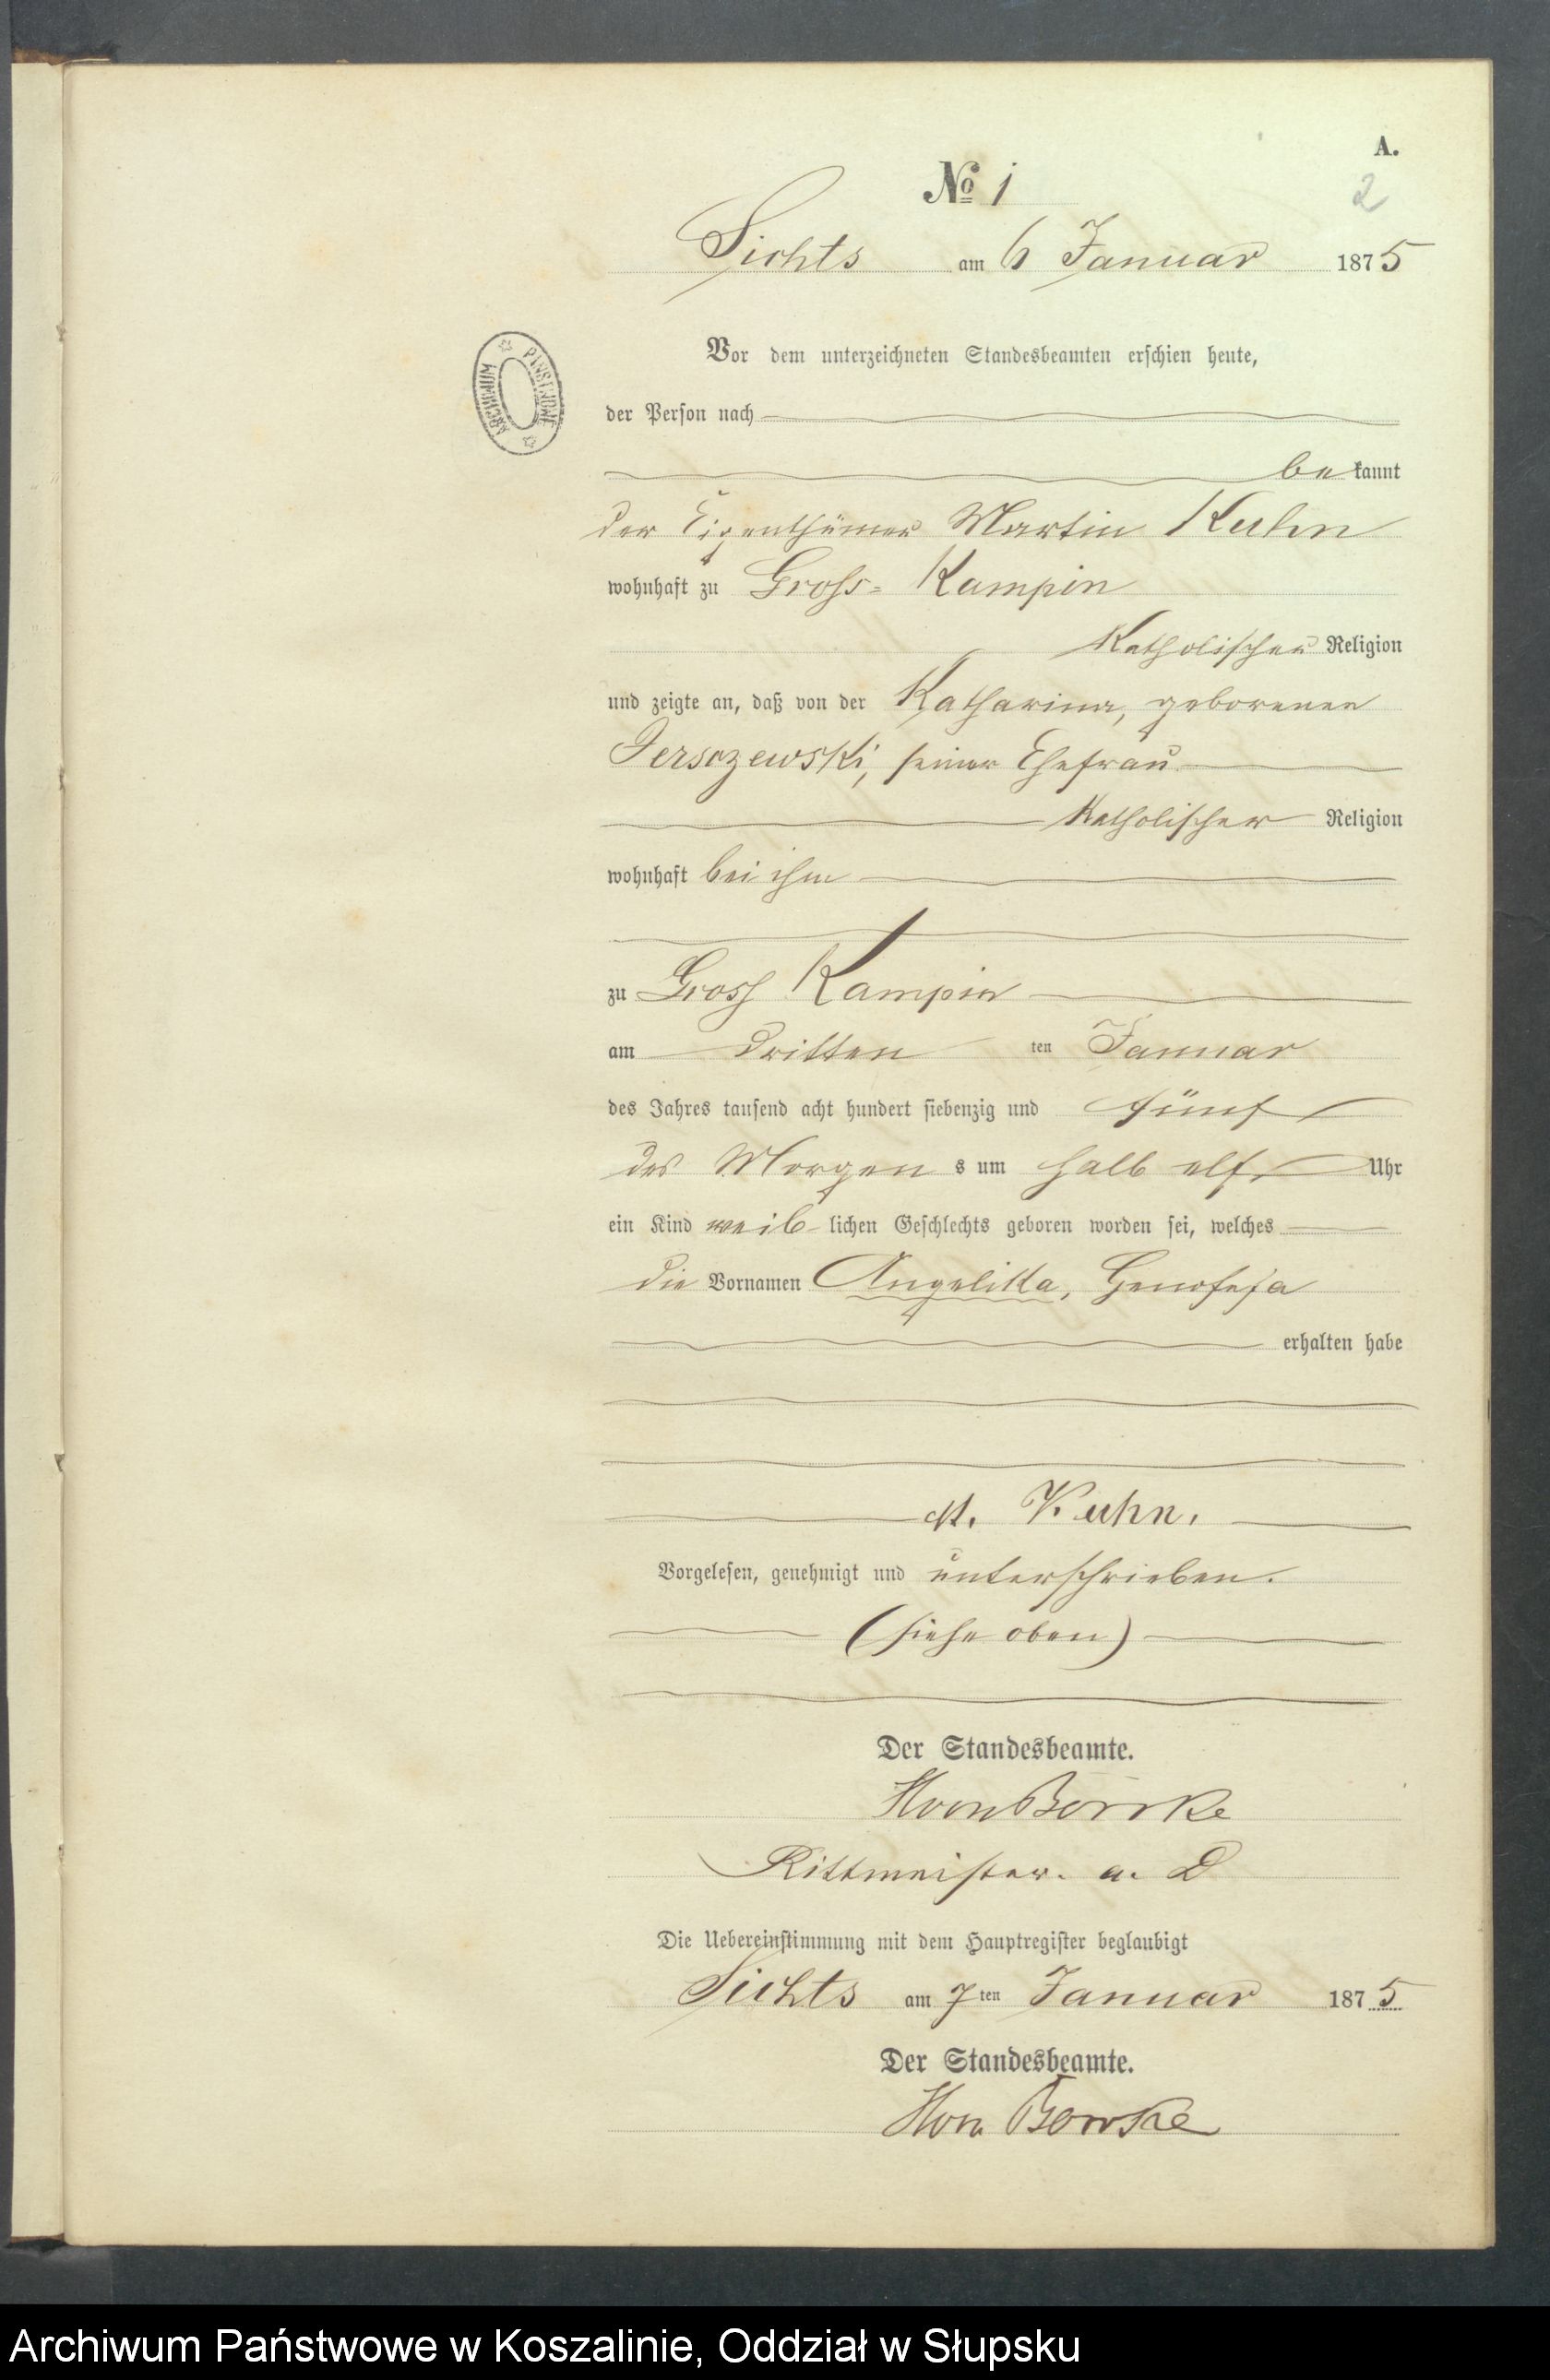 A.
No 1
2
Sichts am 6 Januar 1875
ARCHIWUM PAŃSTWOWE
Vor dem unterzeichneten Standesbeamten erschien heute,
der Person nach
be kannt
der Eigenthümer Martin Kuhn
wohnhaft zu Gross- Kampin
Katholischer Religion
und zeigte an, daß von der Katharina, geborenen
Jersczewski, seiner Ehefrau
Katholischer Religion
wohnhaft bei ihm
zu Gross Kampin
am dritten ten Januar
des Jahres tausend acht hundert siebenzig und fünf
des Morgen s um halb elf Uhr
ein Kind weib lichen Geschlechts geboren worden sei, welches
die Vornamen Angelika, Genofefa
erhalten habe
M. Kuhn.
Vorgelesen, genehmigt und unterschrieben.
(siehe oben)
Der Standesbeamte.
HvonBorcke
Rittmeister. a. D
Die Uebereinstimmung mit dem Hauptregister beglaubigt
Sichts am 7ten Januar 1875
Der Standesbeamte.
Hvon Borcke
Archiwum Państwowe w Koszalinie, Oddział w Słupsku